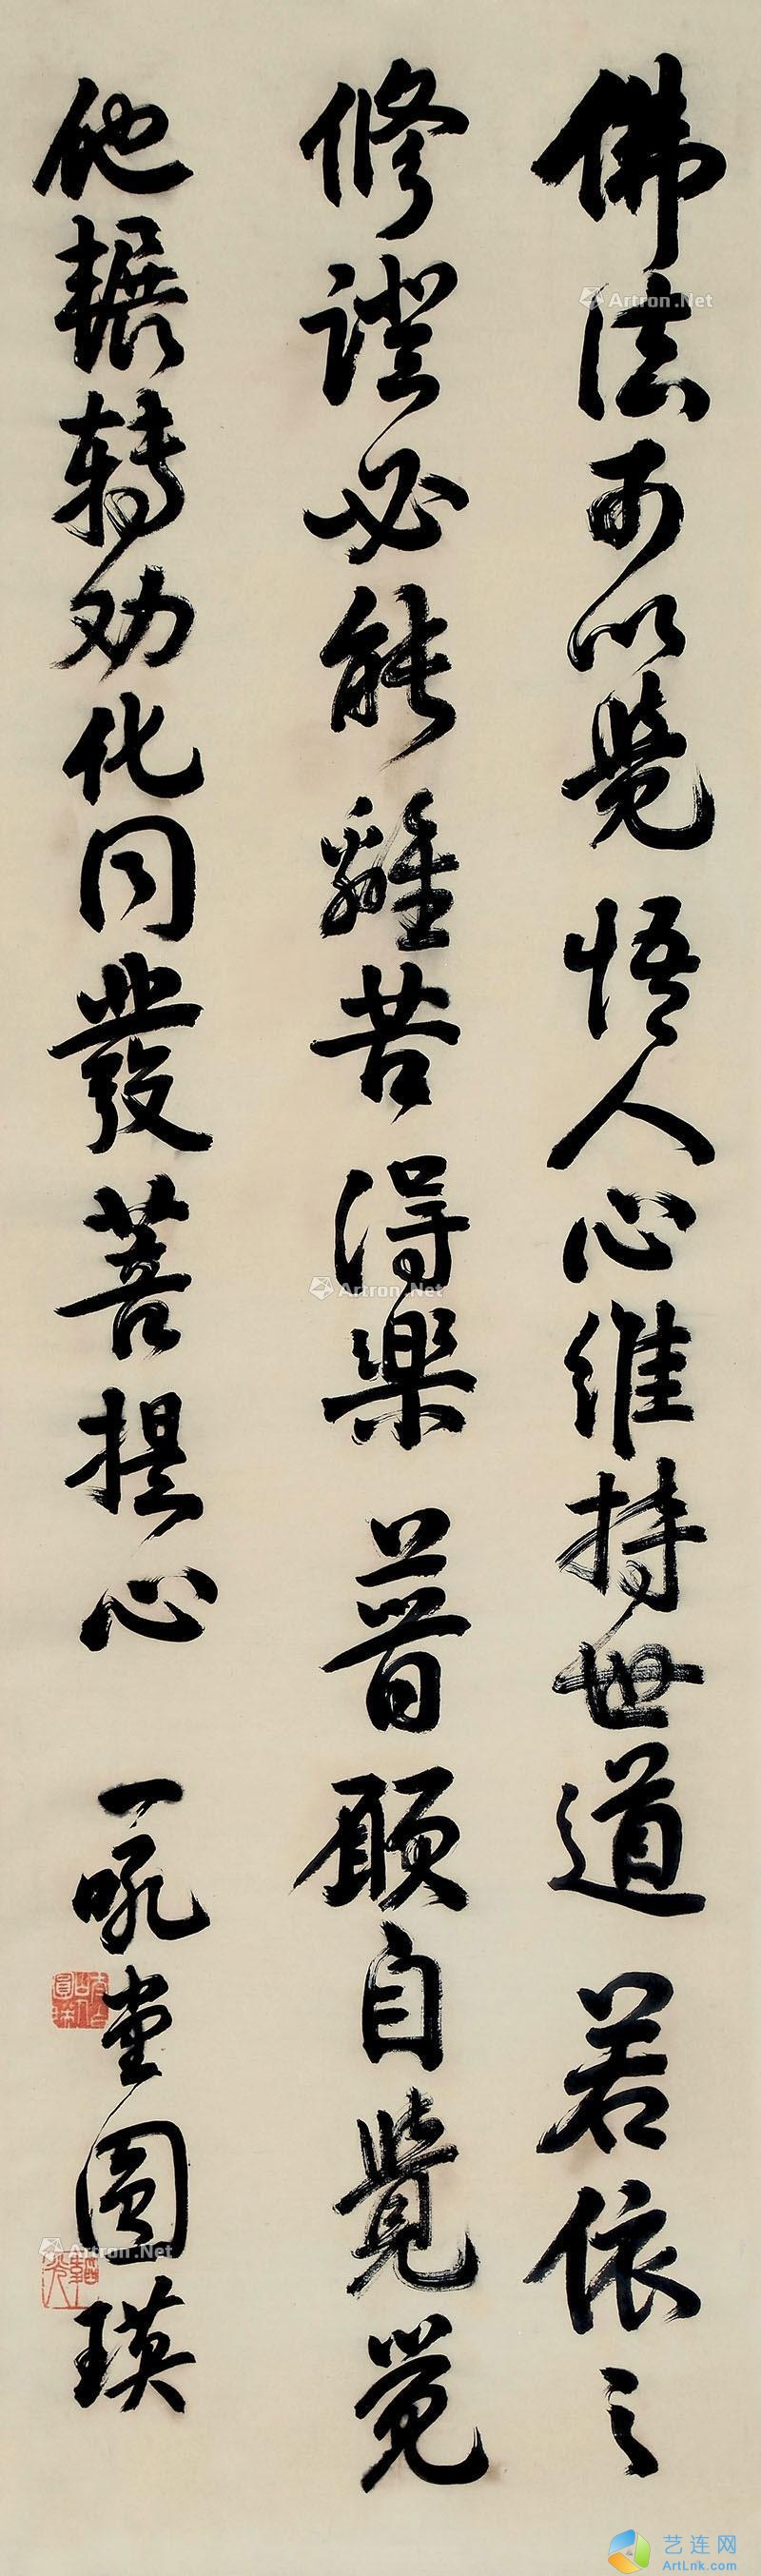 佛法可以覺悟人心維持世道若依之
修證必能離苦得樂普願自覺覺
他輾转劝化同發菩提心
一吼堂圓瑛
Artron.Net
Artron.Net
Artron.Net
艺连网
ArtLnk.com